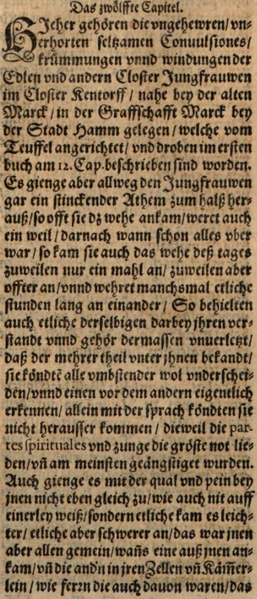 Das zwölffte Capitel.
HJeher gehören die vngehewren/ vn-
erhorten seltzamen Conuulsiones/
krümmungen vnnd windungen der
Edlen vnd andern Closter Jungfrauwen
im Closter Kentorff/ nahe bey der alten
Marck/ in der Graffschafft Marck bey
der Stadt Hamm gelegen/ welche vom
Teuffel angerichtet/ vnd droben im ersten
buch am 12. Cap. beschrieben sind worden.
Es gienge aber allweg den Jungfrauwen
gar ein stinckender Athem zum halß her-
auß/ so offt sie dz wehe ankam/ weret auch
ein weil/ darnach wann schon alles vber
war/ so kam sie auch das wehe deß tages
zuweilen nur ein mahl an/ zuweilen aber
offter an/ vnnd wehret manchsmal etliche
stunden lang an einander/ So behielten
auch etliche derselbigen darbey jhren ver-
standt vnnd gehör dermassen vnuerletzt/
daß der mehrer theil vnter jhnen bekandt/
sie köndtē alle vmbstender wol vnderschei-
den/ vnnd einen vor dem andern eigentlich
erkennen/ allein mit der sprach köndten sie
nicht herausser kommen/ dieweil die par-
tes spirituales vnd zunge die gröste not lie-
den/ vñ am meinsten geängstiget wurden.
Auch gienge es mit der qual vnd pein bey
jnen nicht eben gleich zu/ wie auch nit auff
einerley weiß/ sondern etliche kam es leich-
ter/ etliche aber schwerer an/ das war jnen
aber allen gemein/ wañs eine auß jnen an-
kam/ vñ die and'n in jren Zellen vñ Kām̄er-
lein/ wie ferrn die auch dauon waren/ das